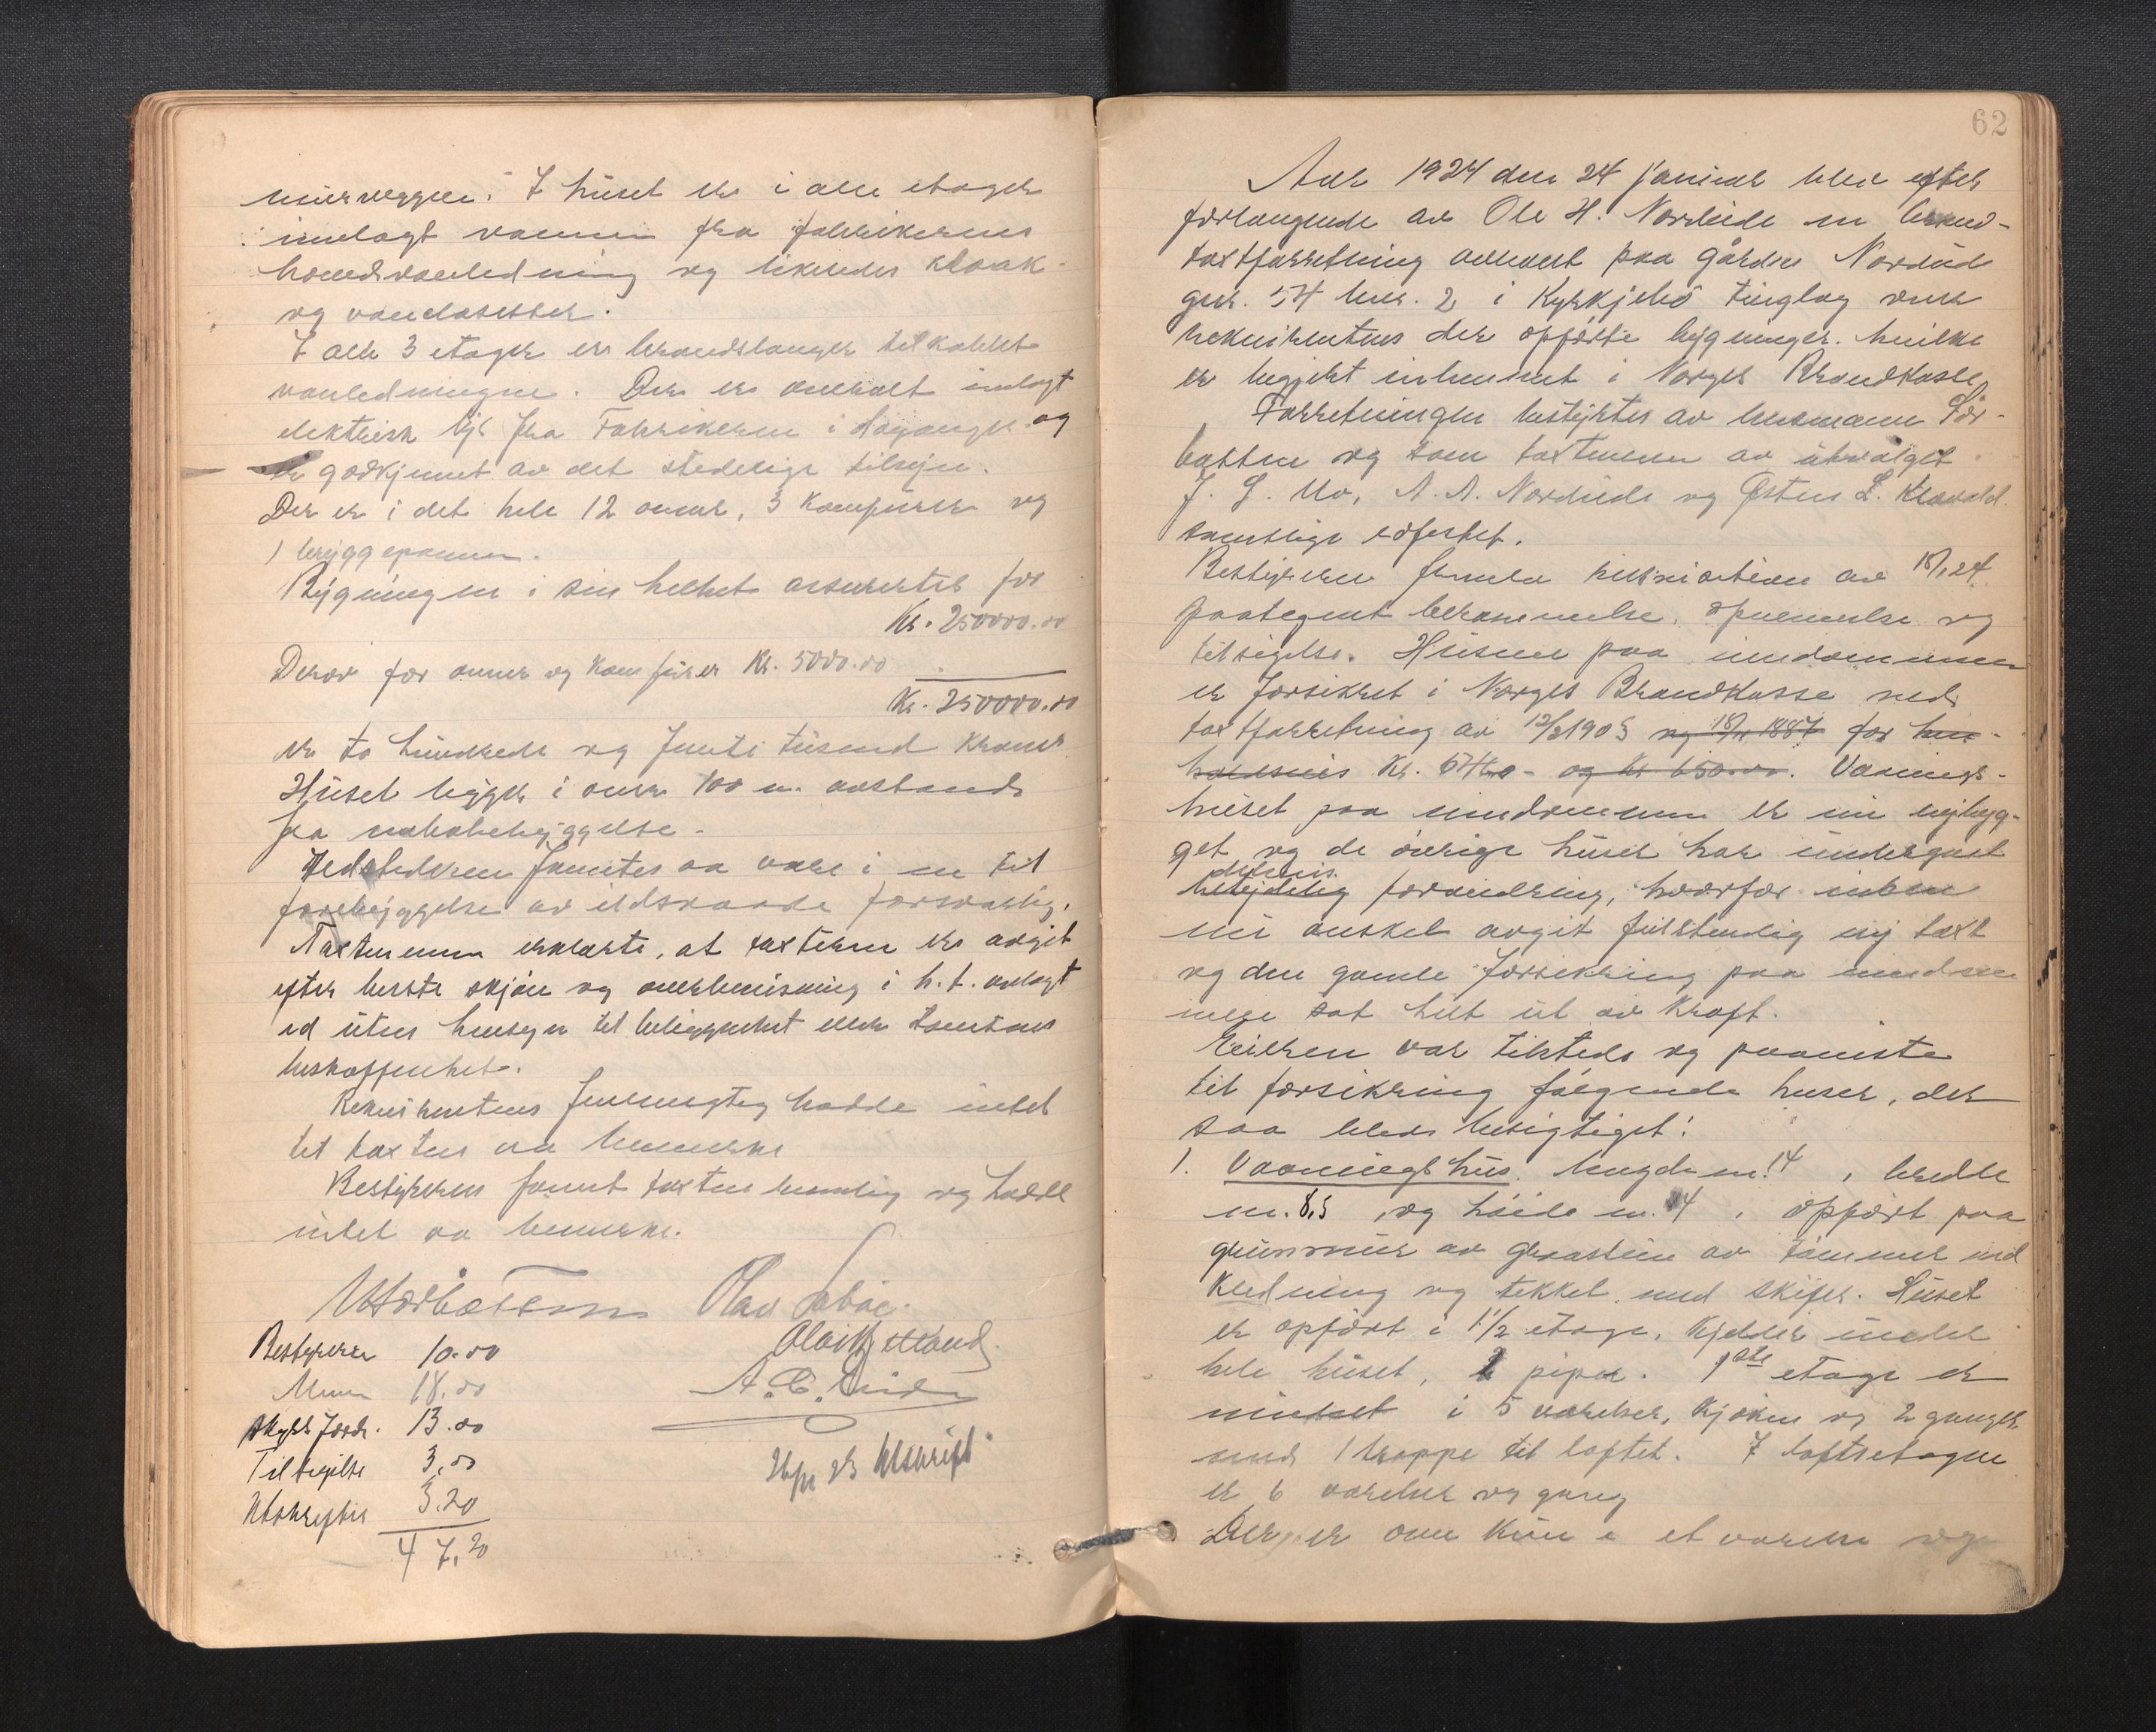 murveggen. I huset er i alle etager
innlagt vann fra fabrikernes
hovedvanledning og likeledes kloak
og vandklosetter.
I alle 3 etager er brandslanger tilkoblet
vanledningen. Der er overalt innlagt
elektrisk lys fra Fabrikerne i Høyanger og
er godkjennt av det stedelige tilsyn.
Der er i det hele 12 ovner, 3 komfurer og
1 bryggepanne.
Bygningen i sin helhet assurertes for
Kr. 250000.00
Derav for ovner og komfurer Kr. 5000.00
Kr. 250000.00
er to hundrede og femti tusend kroner
Huset ligger i over 100 m. avstand
fra nabobebyggelse.
Ildstederne fanntes aa være i en til
forebyggelse av ildsvaade forsvarlig.
Taxtmennene erklærte, at taxterne er avgit
efter beste skjøn og overbevisning i h. t. avlagt
ed uten hensyn til beliggenhet eller tomtens
beskaffenhet.
Rekvirentens fullmegtig hadde intet
til taxten aa bemerke
Bestyreren fannt taxten rimelig og hadde
intet aa bemerke.
Olav
Bestyreren 10.00
Menn 18.00
Skyds ford. 13.00
Tilsigelse 3.00
Utskrifter 3.20
47.20
Utskrift
62
Aar 1924 den 24 januar blev efter
forlangende av Ole H. Nordeide en brand-
taxtforretning avholdt paa gården Nordeide
gnr. 54 bnr. 2 i Kyrkjebø tinglag over
rekvirentens der opførte bygninger. hvilke
er begjert innbrennt i Norges Brandkasse
Forretningen bestyrtes av lensmann Før-
batten og som taxtmenn av utvalget
J. S. Mo, A. A. Nordeide og Østen L. Kleivdal.
samtlige edfestet.
Bestyreren fremla rekvisition av 18/1 24
paategnet berammelse, opnevnelse og
tilsigelse. Husene paa eiendommen
er forsikret i Norges Brandkasse ved
taxtforretning av 12/2 1905 og 18/11 1887 for hen-
holdsvis Kr. 6740.- og kr 650.00. Vaanings-
huset paa eiendommen er nu nybyg-
get og de øvrige huser har undergaat
delvis
betydelig forandring, hvorfor
nu ønskes avgit fulstendig ny taxt
og den gamle forsikring paa eiendom
mene sat helt ut av kraft.
Eieren var tilstede og paaviste
til forsikring følgende huser, der
saa blev besigtiget:
1. Vaaningshus. lengde m. 14, bredde
m. 8,5, og høide m. 4, opført paa
grunnmur av graasten av tømmer med
kledning og tekket med skifer. Huset
er opført i 1 1/2 etage. Kjelder under
hele huset, 2 piper. 1ste etage er
inndelt i 5 værelser, kjøken og 2 ganger
med 1 trappe til loftet. I loftsetagen
er 6 værelser og gang
Der er ovn kun i et værelse og